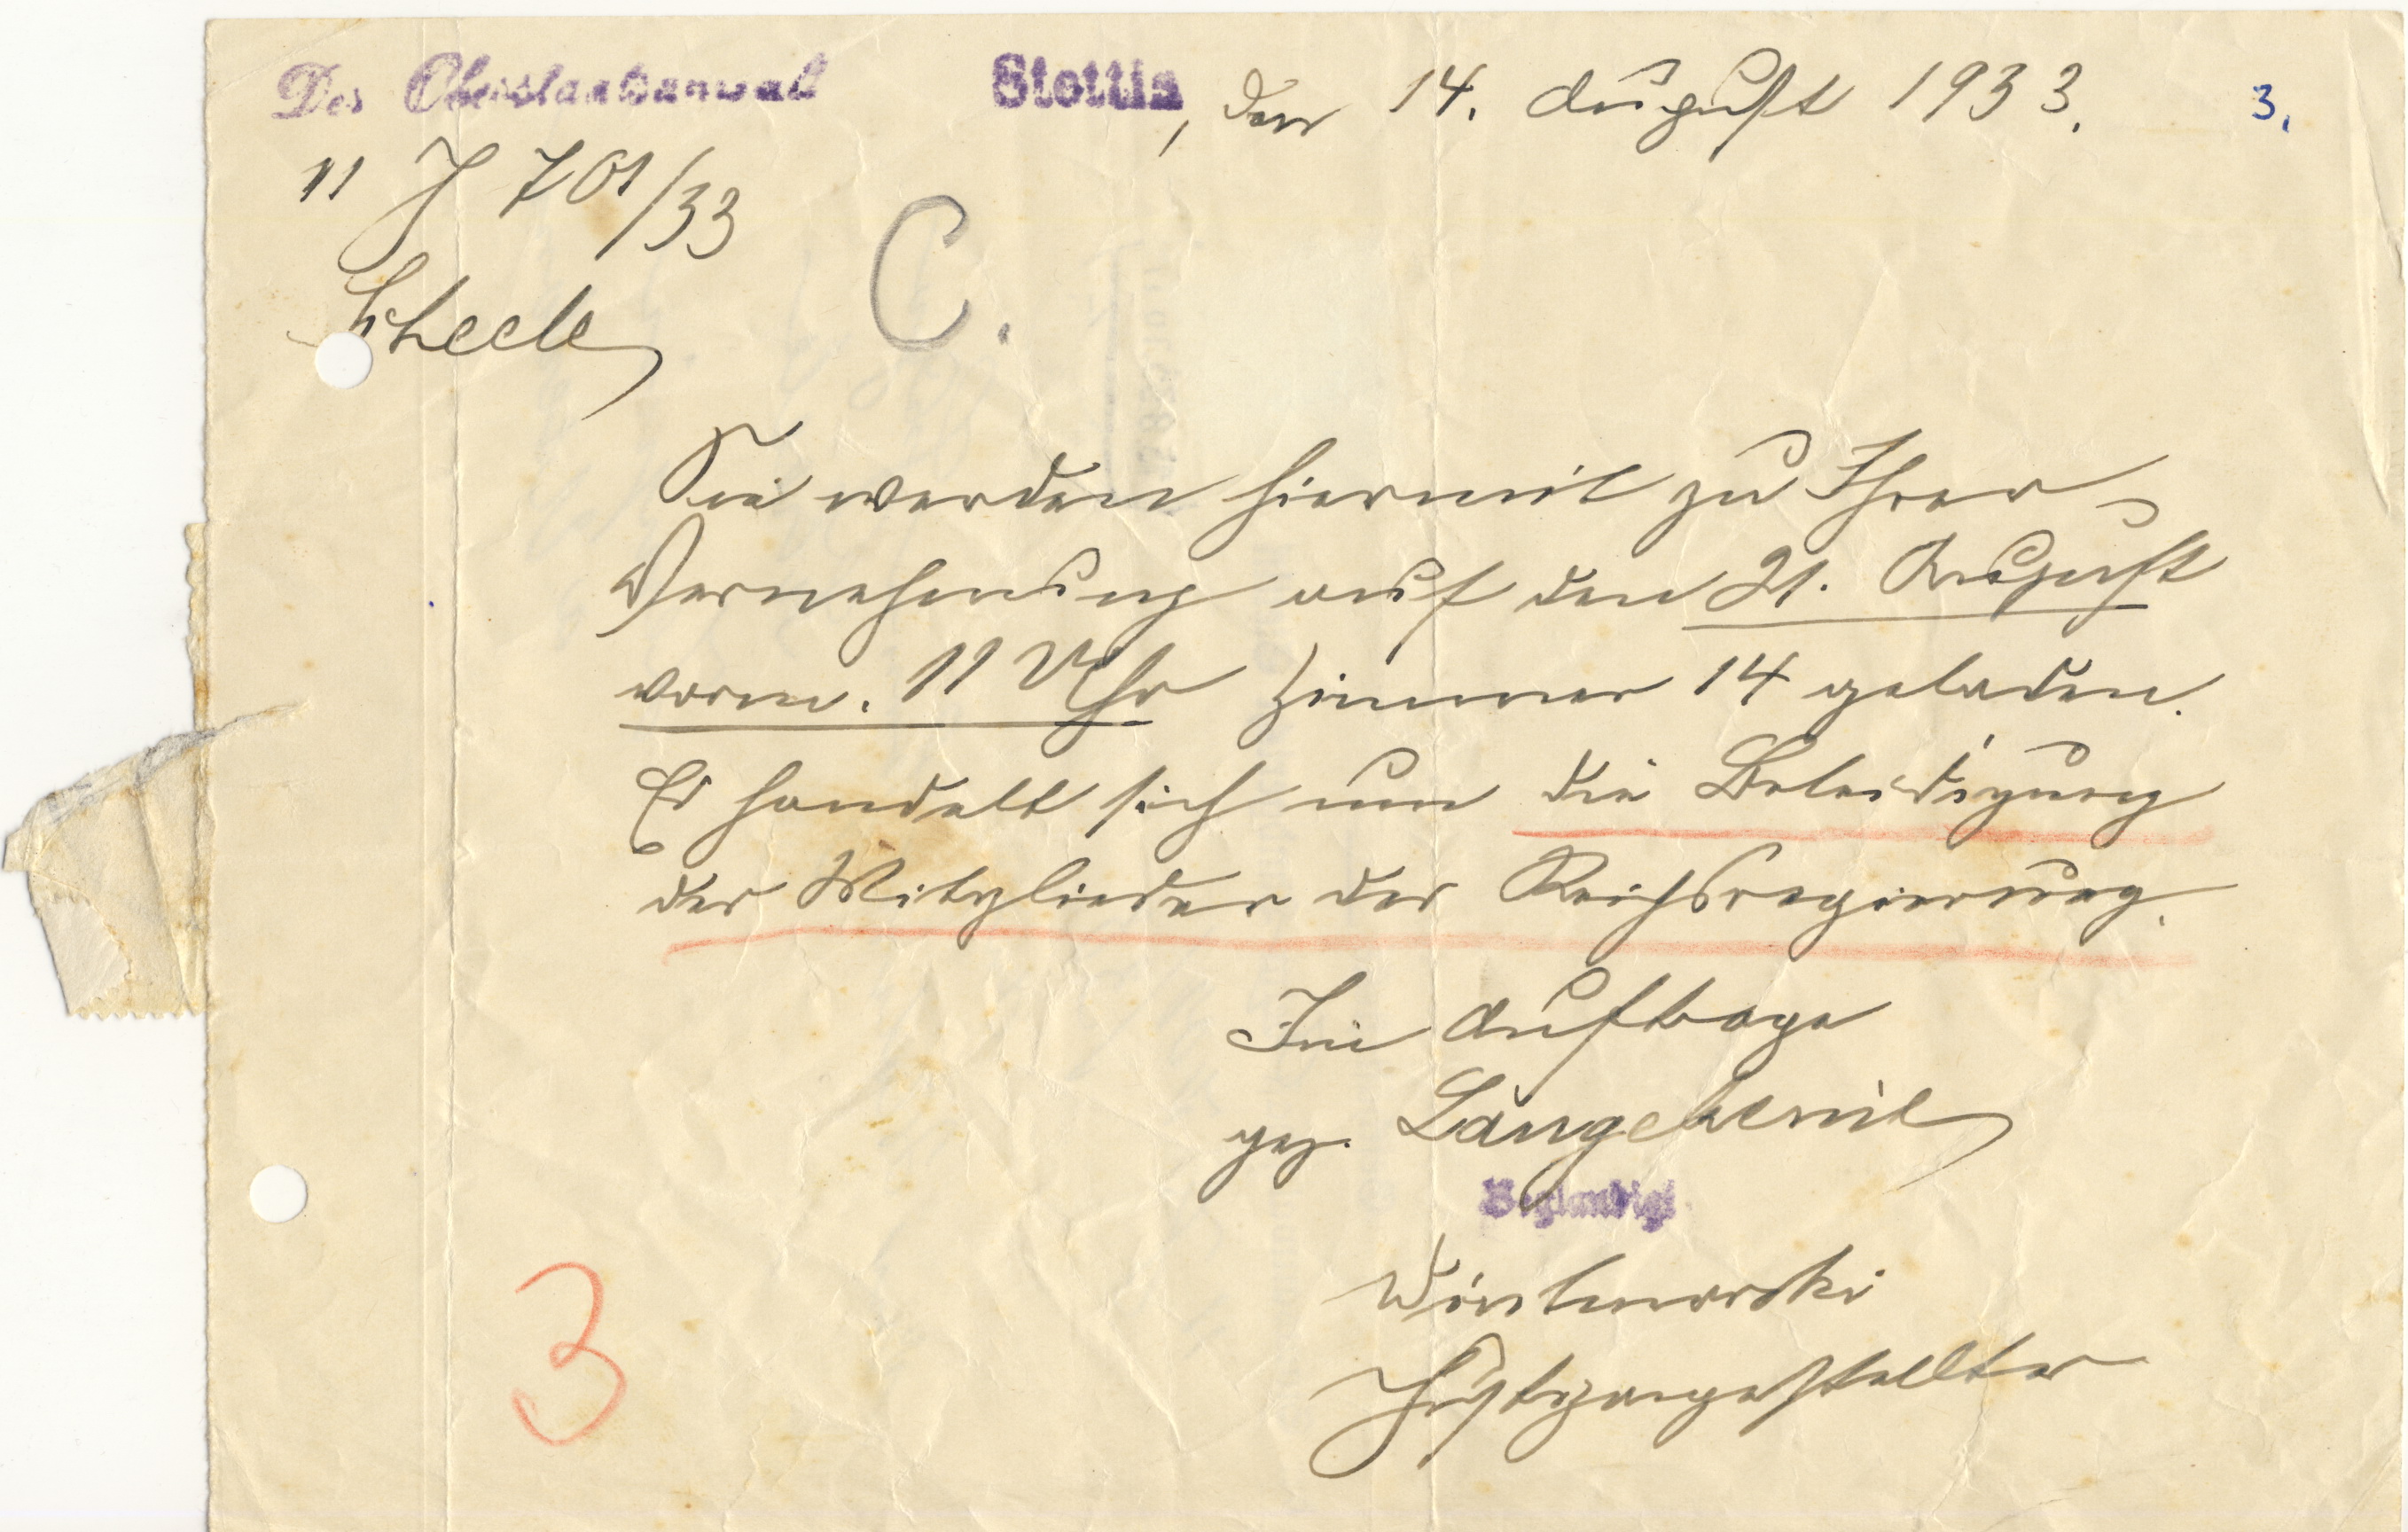 Der Oberstaatsanwalt Stettin, den 14. August 1933. 3.
11 J 701/33
Scheele C.
Sie werden hiermit zu Ihrer
Vernehmung auf den 21. August
vorm. 11 Uhr Zimmer 14 geladen.
Es handelt sich um die Beleidigung
der Mitglieder der Reichsregierung.
Im Auftrage
gez.
Beglaubigt
Justizangestellter
3